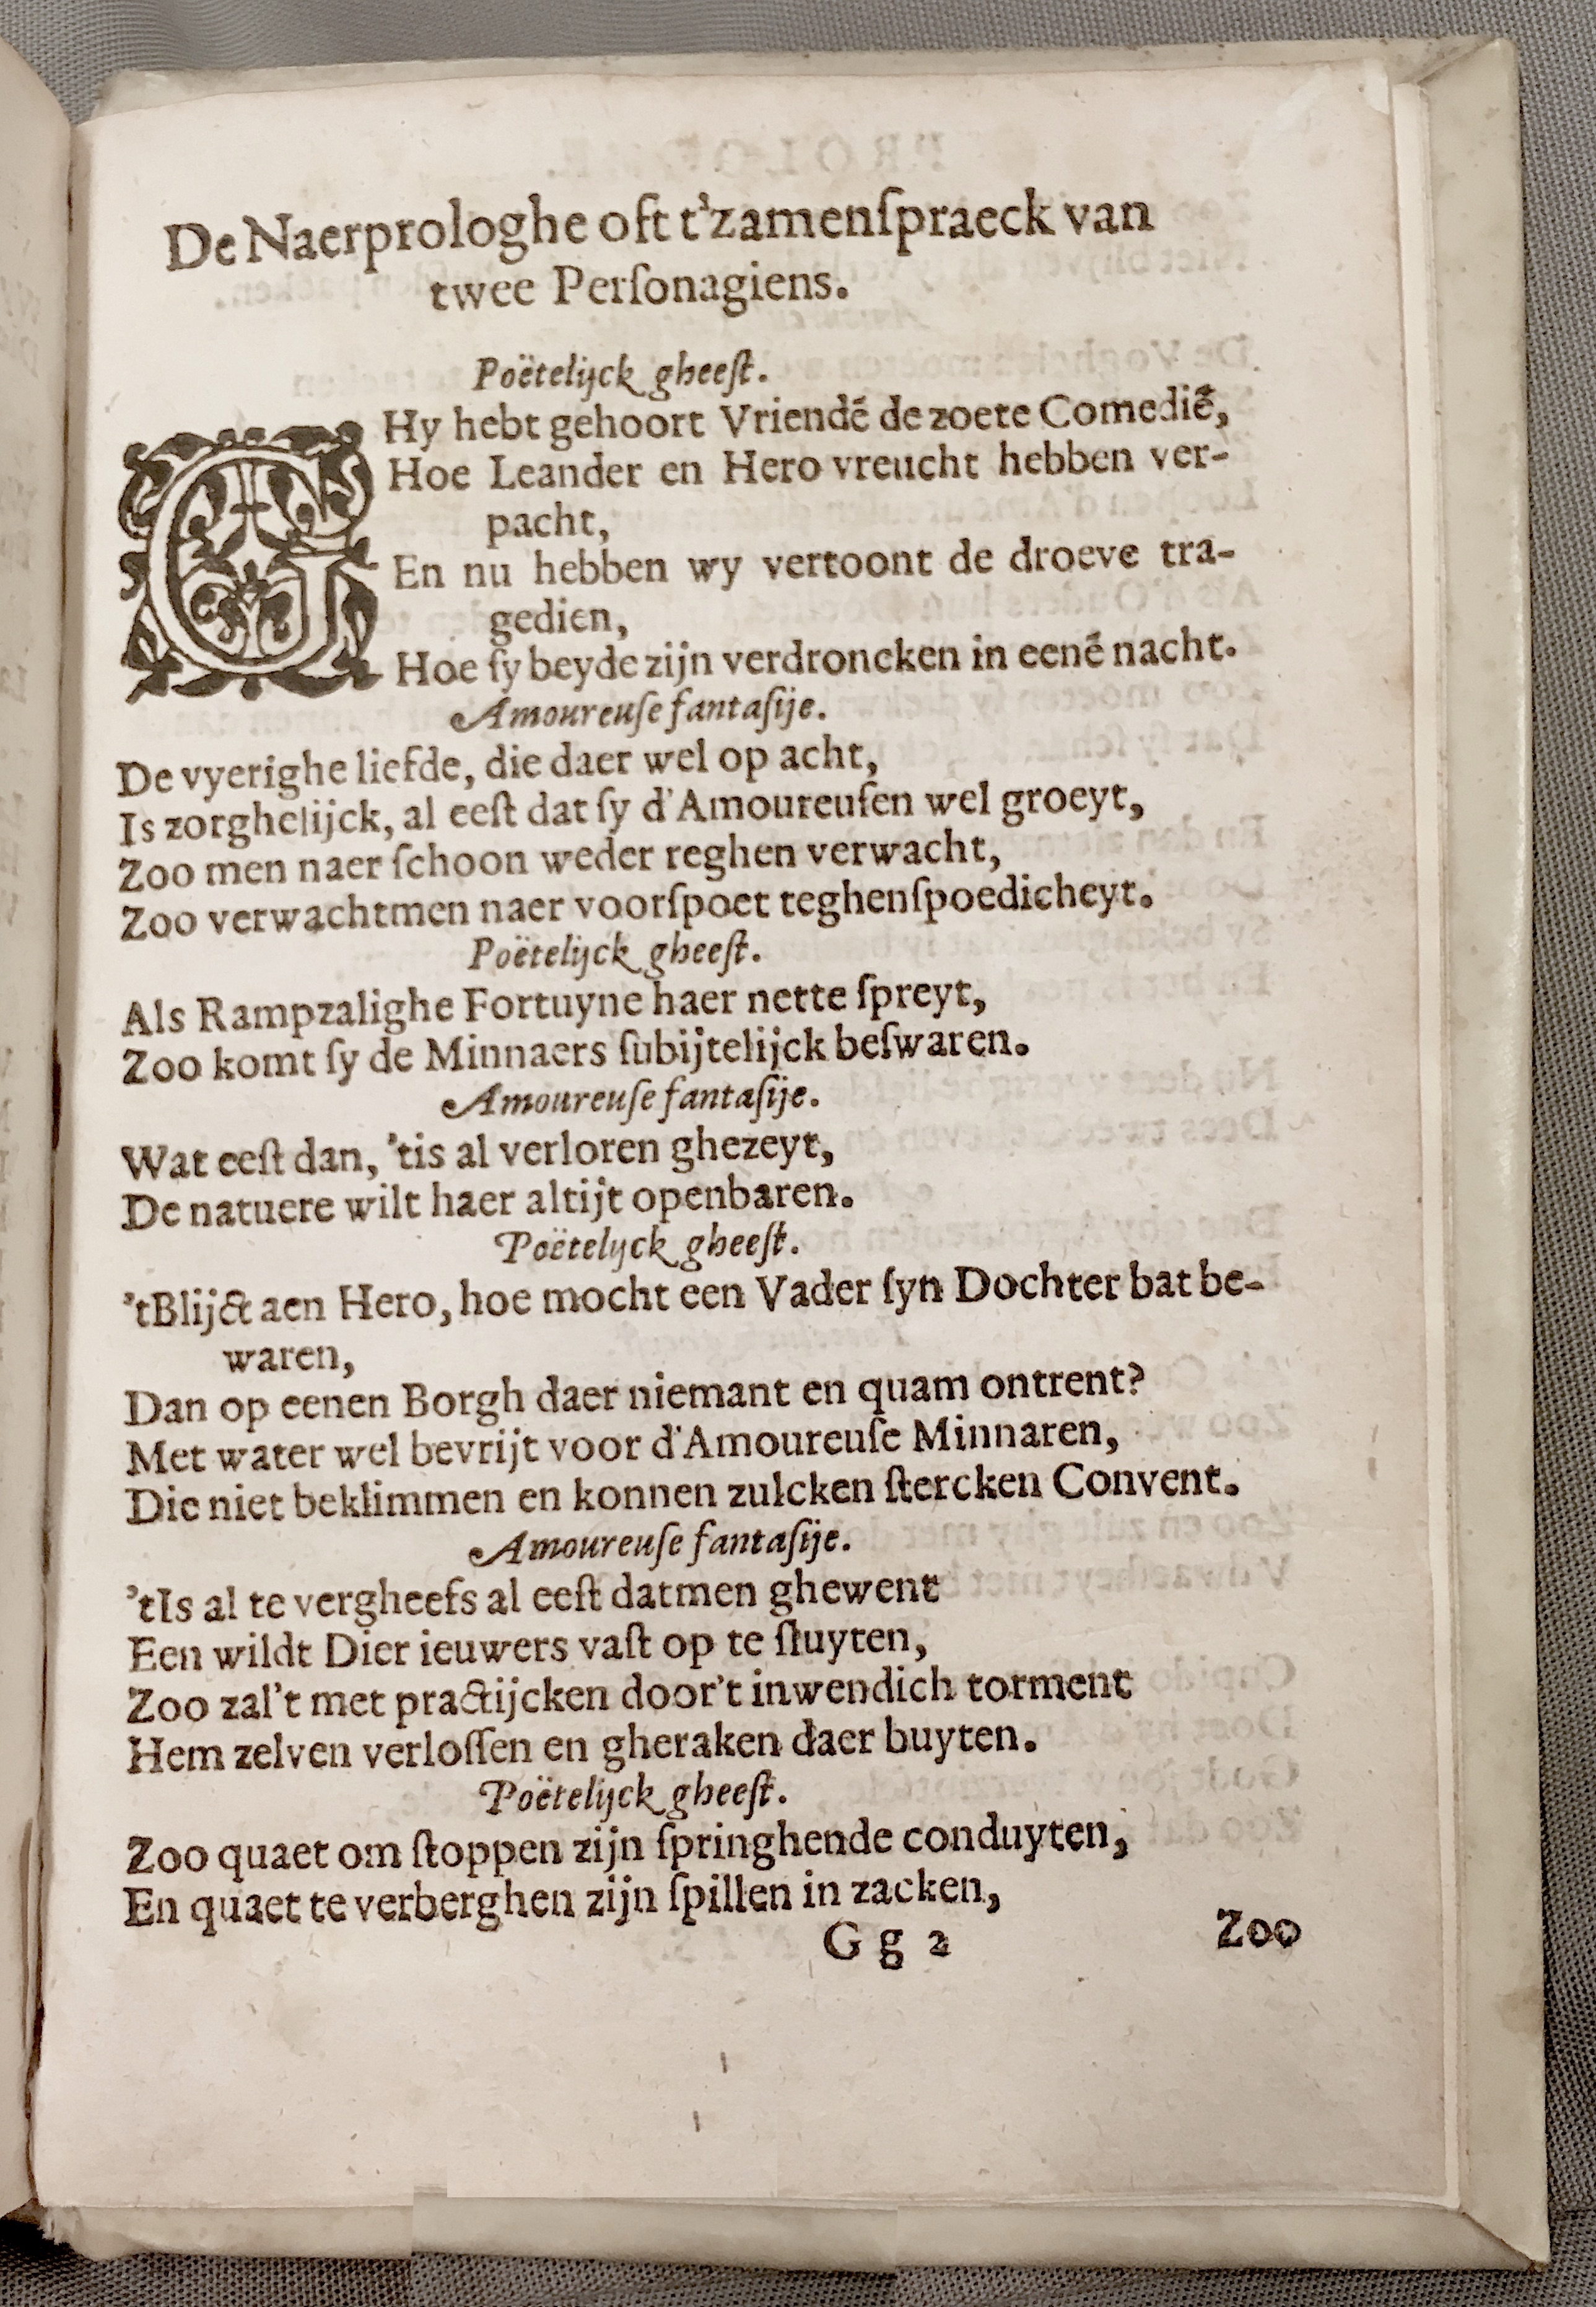 De Naerprologhe oft t'zamenſpraeck van
twee Perſonagiens.
Poëtelijck gheeſt.
GHy hebt gehoort Vriendē de zoete Comediē,
Hoe Leander en Hero vreucht hebben ver-
pacht,
En nu hebben wy vertoont de droeve tra-
gedien,
Hoe ſy beyde zijn verdroncken in eenē nacht.
Amoureuſe fantaſije.
De vyerighe liefde, die daer wel op acht,
Is zorghelijck, al eeſt dat ſy d'Amoureuſen wel groeyt,
Zoo men naer ſchoon weder reghen verwacht,
Zoo verwachtmen naer voorſpoet teghenſpoedicheyt.
Poëtelijck gheeſt.
Als Rampzalighe Fortuyne haer nette ſpreyt,
Zoo komt ſy de Minnaers ſubijtelijck beſwaren.
Amoureuſe fantaſije.
Wat eeſt dan, 'tis al verloren ghezeyt,
De natuere wilt haer altijt openbaren.
Poëtelijck gheeſt.
'tBlijct aen Hero, hoe mocht een Vader ſyn Dochter bat be-
waren,
Dan op eenen Borgh daer niemant en quam ontrent?
Met water wel bevrijt voor d'Amoureuſe Minnaren,
Die niet beklimmen en konnen zulcken ſtercken Convent.
Amoureuſe fantaſije.
'tIs al te vergheefs al eeſt datmen ghewent
Een wildt Dier ieuwers vaſt op te ſluyten,
Zoo zal't met practijcken door't inwendich torment
Hem zelven verloſſen en gheraken daer buyten.
Poëtelijck gheeſt.
Zoo quaet om ſtoppen zijn ſpringhende conduyten,
En quaet te verberghen zijn ſpillen in zacken,
G g 2
Zoo